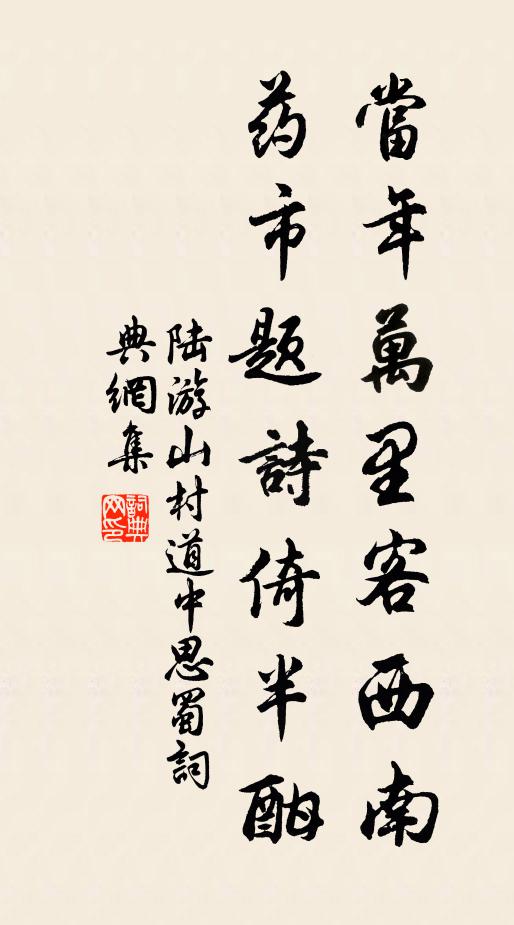 當年萬里客西南
药市題詩倚半酣
陆游山村道中思蜀詞
典網集
詞典
网印